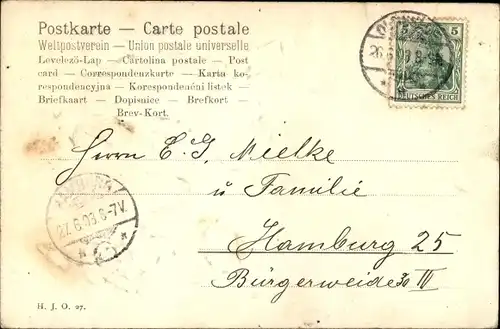 Postkarte — Carte postale
Weltpostverein — Union postale universelle
Levelező-Lap — Cartolina postale — Post
card — Correspondenzkarte — Karta ko-
respondencyjna — Korespondenční listek —
Briefkaart — Dopisnice — Brefkort —
Brev-Kort.
5 5
DEUTSCHES REICH
Herrn E. G. Mielke
u Familie
27.6.03.6-7V.
Hamburg 25
Bürgerweide 30 IV
H. J. O. 27.